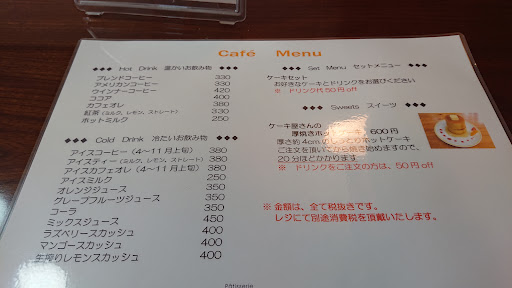 Café Menu
◆◆◆ Hot Drink 温かいお飲み物 ◆◆◆
ブレンドコーヒー 330
アメリカンコーヒー 330
ウインナーコーヒー 420
ココア 400
カフェオレ 380
紅茶(ミルク、レモン、ストレート) 330
ホットミルク 250
◆◆◆ Cold Drink 冷たいお飲み物 ◆◆◆
アイスコーヒー(4～11月上旬) 380
アイスティー(ミルク、レモン、ストレート) 380
アイスカフェオレ(4～11月上旬) 380
アイスミルク 250
オレンジジュース 350
グレープフルーツジュース 350
コーラ 350
ミックスジュース 450
ラズベリースカッシュ 400
マンゴースカッシュ 400
生搾りレモンスカッシュ 400
◆◆◆ Set Menu セットメニュー ◆◆◆
ケーキセット
お好きなケーキとドリンクをお選びください
※ ドリンク代50円off
◆◆◆ Sweets スイーツ ◆◆◆
ケーキ屋さんの
厚焼きホッ 600円
厚さ約4cmのしっとりホットケーキ
ご注文を頂いてから焼き始めますので、
20分ほどかかります
※ ドリンクをご注文の方は、50円off
※ 金額は、全て税抜きです。
レジにて別途消費税を頂戴いたします。
Pâtisserie